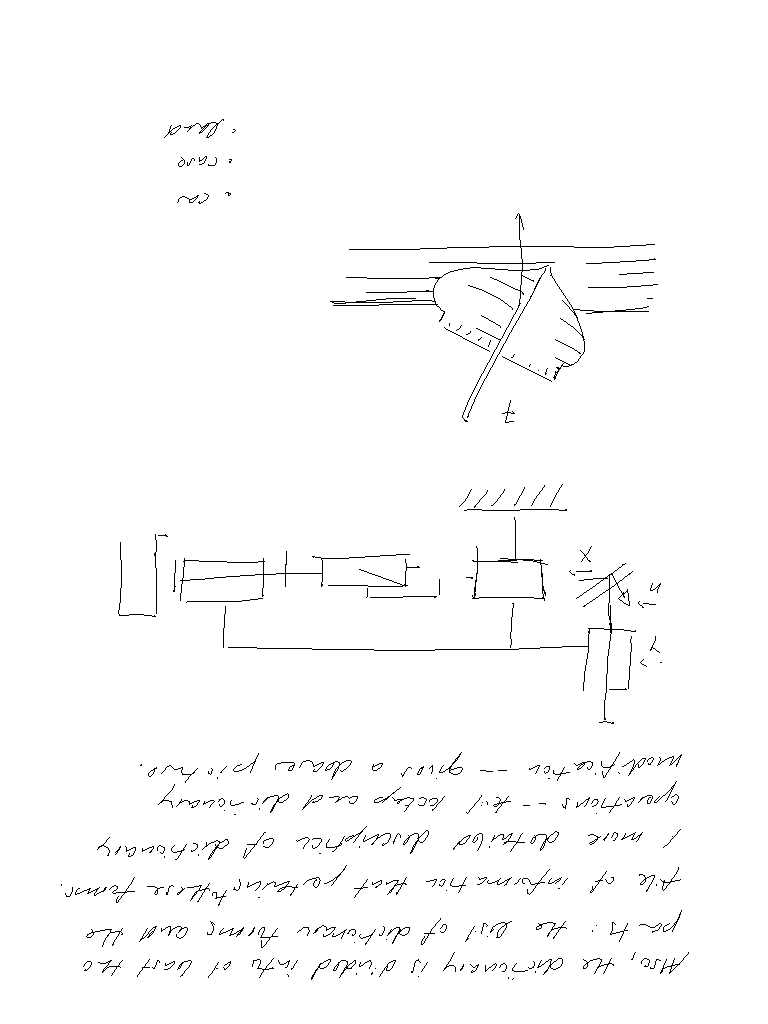 Also, the dictionary is divided into at least two
parts: the list of dictionary forms and the
file of information that pertains to these forms.
A more detailed description of dictionary
operations -- text lookup and dictionary
modification -- gives a clearer picture.
y
u
x
• car
• care